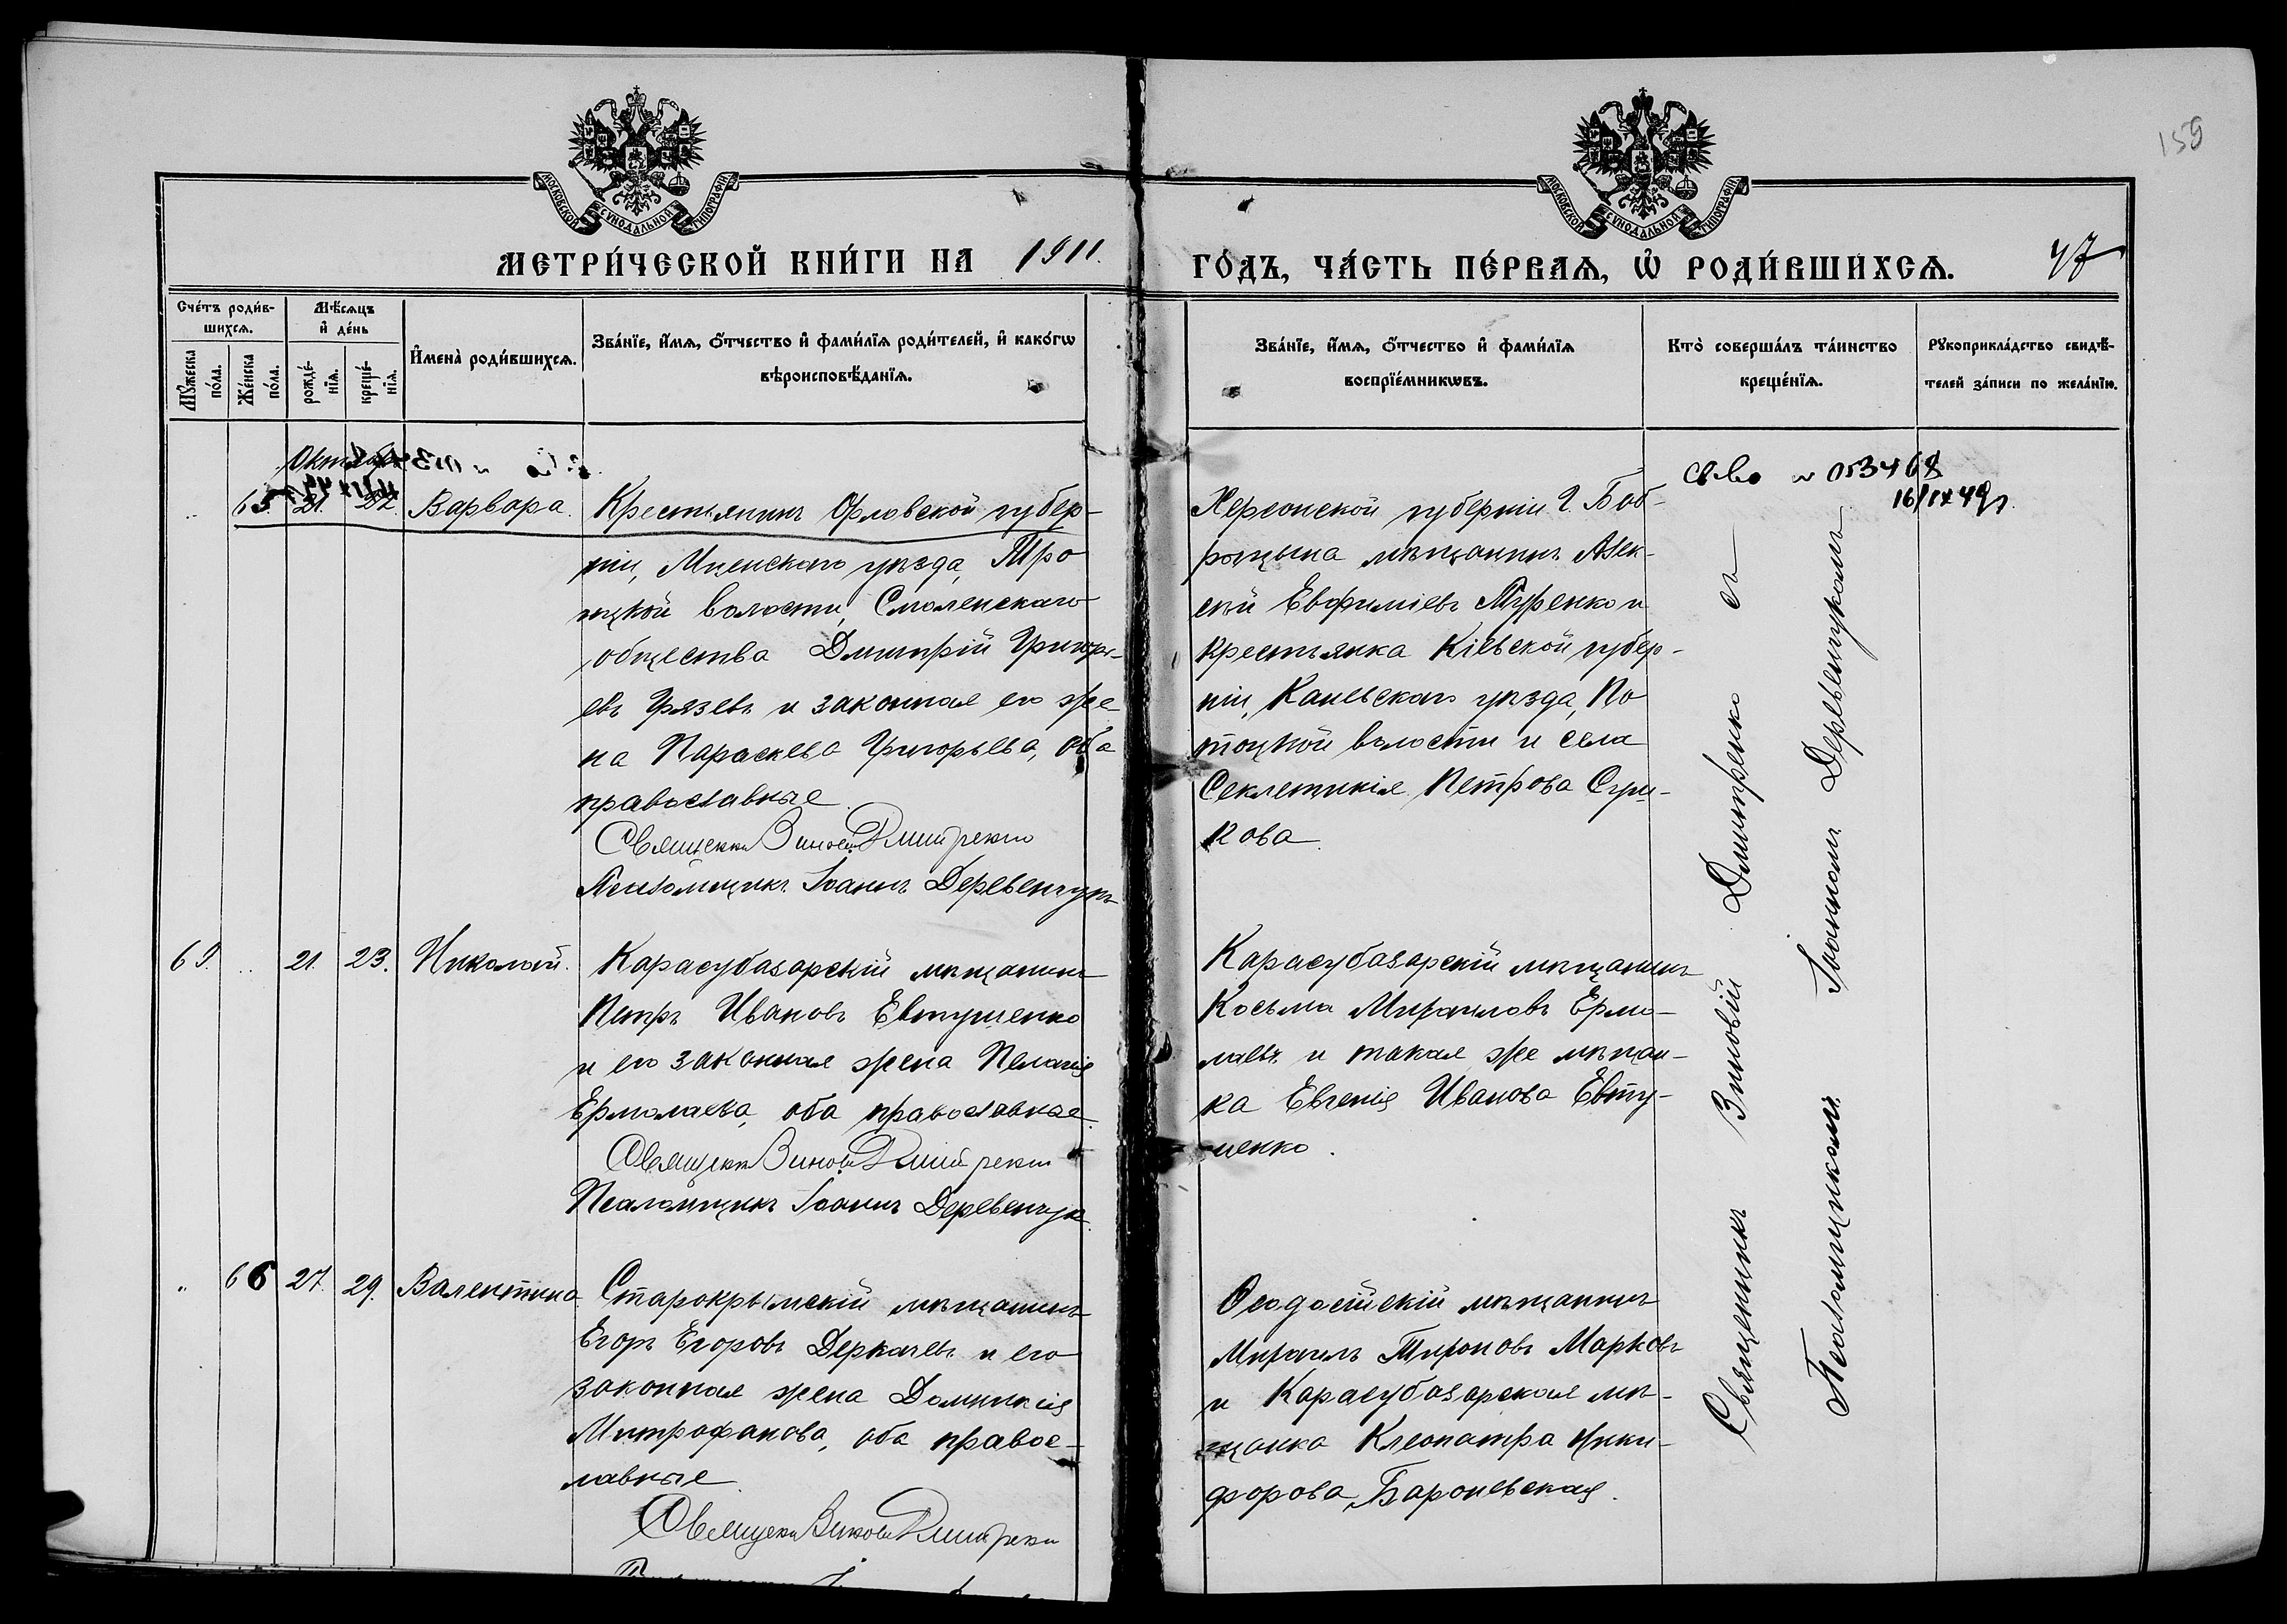 159
МОСКОВСКОЙ СѴНОДАЛЬНОЙ ТИПОГРАФІИ
МОСКОВСКОЙ СѴНОДАЛЬНОЙ ТИПОГРАФІИ
МЕТРИ́ЧЕСКОЙ КНИ́ГИ НА 1911.
ГО́ДЪ, ЧА́СТЬ ПЕ́РВАѦ, Ѡ РОДИ́ВШИХСѦ. 47
Сче́тъ роди́в-
шихсѧ.
Мꙋ́жеска по́ла.
Же́нска по́ла.
Мѣ́сѧцъ
и҆ де́нь
рожде́-
нїѧ.
креще́-
нїѧ.
И҆мена̀ роди́вшихсѧ.
Зва́нїе, и҆́мѧ, ѻ҆́тчество и҆ фами́лїѧ роди́телей, и҆ како́гѡ
вѣроисповѣ́данїѧ.
Зва́нїе, и҆́мѧ, ѻ҆́тчество и҆ фами́лїѧ
воспрїе́мникѡвъ.
Кто̀ соверша́лъ та́инство
креще́нїѧ.
Рꙋкоприкла́дство свидѣ́-
телей за́писи по жела́нїю.
Октябр
65. 21. 22. Варвара.
Крестьянинъ Орловской губер-
ніи, Мценскаго уѣзда, Тро
ицкой волости, Смоленскаго
общества Дмитрій Григорь-
евъ Грязевъ и законная его же-
на Параскева Григорьева, оба
православные.
Священник Зиновій Дмитренко
Псаломщикъ Іоаннъ Деревенчукъ
Херсонской губерніи г. Боб-
ринца мѣщанинъ Алек-
сѣй Евфиміевъ Муренко и
крестьянка Кіевской губер-
ніи, Каневскаго уѣзда, По
тоцкой волости и села
Секлетикія Петрова Сули-
кова.
св-во № 053468
16/IX 49г.
69. .. 21. 23. Николай.
Карасубазарскій мѣщанинъ
Петръ Ивановъ Евтушенко
и его законная жена Пелагія
Ермолаева, оба православные.
Священник Зиновій Дмитренко
Псаломщикъ Іоаннъ Деревенчук.
Карасубазарскій мѣщанинъ
Косьма Михаиловъ Ермо-
лаевъ и такая же мѣщан-
ка Евгенія Иванова Евту-
шенко.
.. 66 27. 29. Валентина
Старокрымскій мѣщанинъ
Егоръ Егоровъ Деркачевъ и его
законная жена Домникія
Митрофанова, оба правос-
лавные.
Священник Зиновій Дмитренко
Ѳеодосійскій мѣщанинъ
Михаилъ Тихоновъ Марковъ
и Карасубазарская мѣ-
щанка Клеопатра Ники-
форова Бароневская.
Священникъ Зиновій Дмитренко съ
Псаломщикомъ Іоанномъ Деревенчукомъ